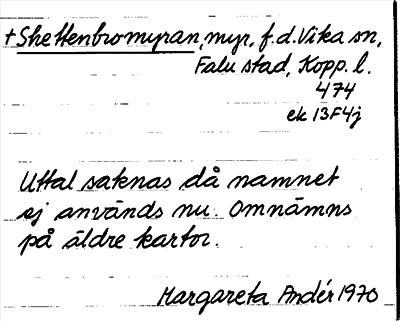 + Skettenbromyran, myr, f.d. Vika sn,
Falu stad, Kopp. l.
474
ek 13F4j
Uttal saknas då namnet
ej används nu. Omnämns
på äldre kartor.
Margareta Andér 1970